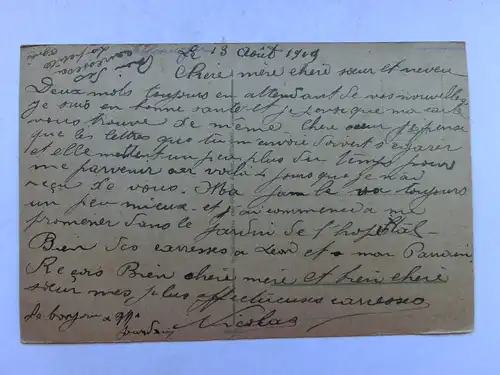 Le 13 Août 1919
Chère mère chère sœur et neveu
Deux mots toujours en attendant de vos nouvelles
Je suis en bonne santé et je pense que ma carte
vous trouve de même. Chere sœur je pense
que les lettres que tu m'envoie doivent s'égarer
et elle mettent un peu plus du temps pour
me parvenir car voila jours que je n'ai
reçu de vous. Ma jambe va toujours
un peu mieux et j'ai commencé a me
promener dans le jardin de l'hopital
Bien des carresses a Léon et a mon Parrain
Reçois Bien chère mère et bien chère
sœur mes plus affectueuses carresses
Le bonjour a
Nicolas
Bon
carresses
La petite